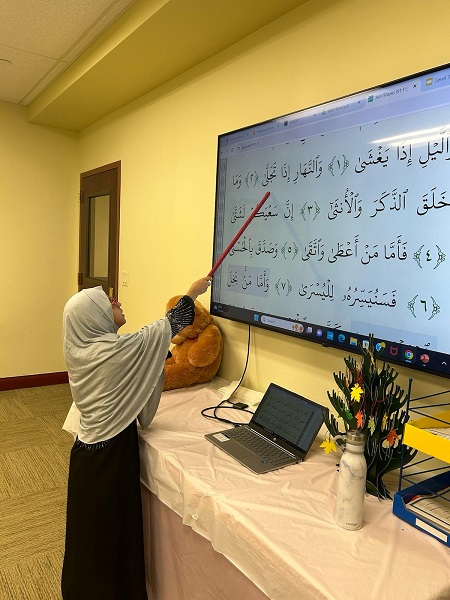 وَٱلَّيْلِ إِذَا يَغْشَىٰ ﴿١﴾ وَٱلنَّهَارِ إِذَا تَجَلَّىٰ ﴿٢﴾ وَمَا
خَلَقَ ٱلذَّكَرَ وَٱلْأُنثَىٰٓ ﴿٣﴾ إِنَّ سَعْيَكُمْ لَشَتَّىٰ
﴿٤﴾ فَأَمَّا مَنْ أَعْطَىٰ وَٱتَّقَىٰ ﴿٥﴾ وَصَدَّقَ بِٱلْحُسْنَىٰ
﴿٦﴾ فَسَنُيَسِّرُهُۥ لِلْيُسْرَىٰ ﴿٧﴾ وَأَمَّا مَنۢ بَخِلَ